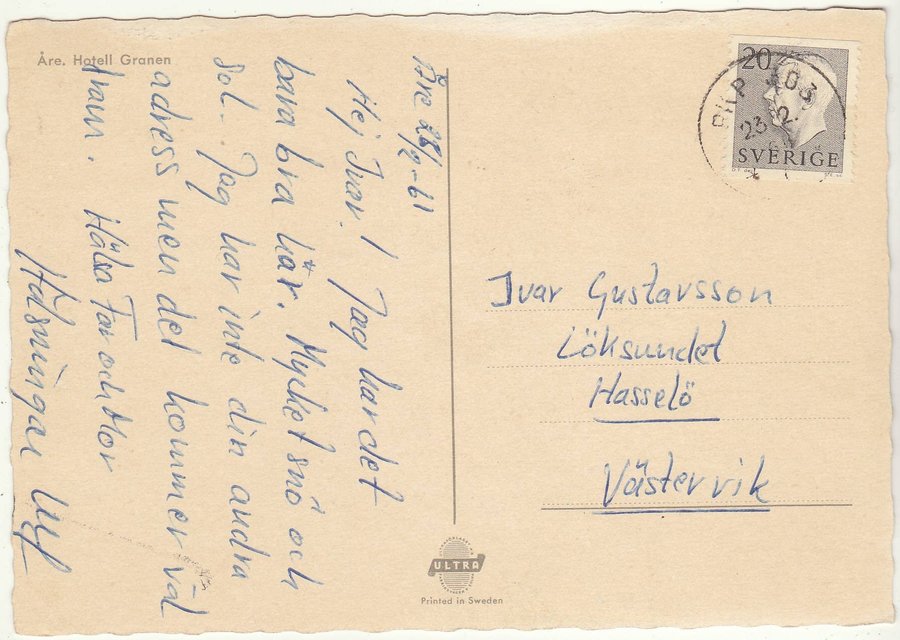 Åre. Hotell Granen
Åre 23/2-61
Hej Ivar! Jag har det
bara bra här. Mycket snö och
sol. Jag har inte din andra
adress men det kommer väl
fram. Hälsa Far och Mor
Hälsningar Ulf
20
PKP 303
23 2
SVERIGE
Ivar Gustavsson
Löksundet
Hasselö
Västervik
ULTRA
Printed in Sweden